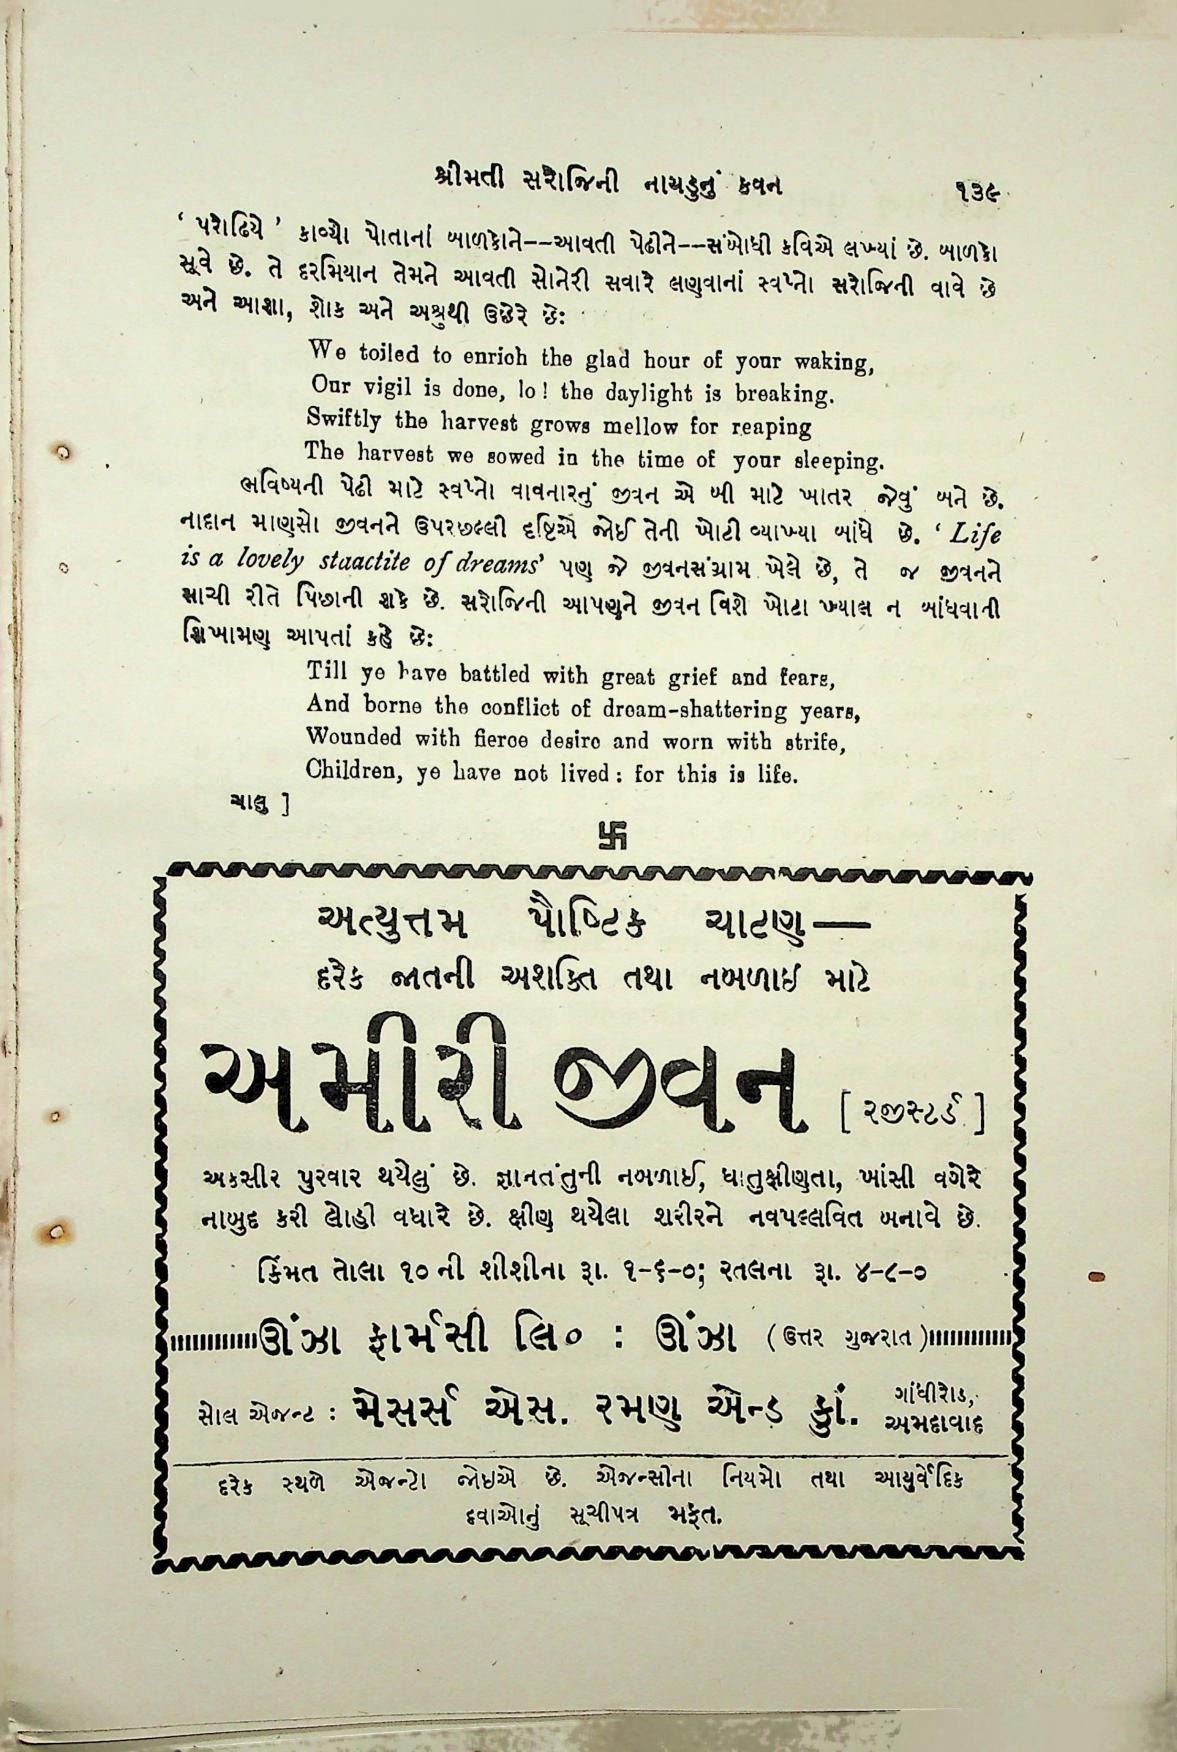 શ્રીમતી સરોજિની નાયડુનું કવન ૧૩૯
‘ પરોઢિયે ’ કાવ્યો પોતાનાં બાળકોને--આવતી પેઢીને--સંબોધી કવિએ લખ્યાં છે. બાળકો
સૂવે છે. તે દરમિયાન તેમને આવતી સોનેરી સવારે લણવાનાં સ્વપ્નો સરોજિની વાવે છે
અને આશા, શોક અને અશ્રુથી ઉછેરે છે:
We toiled to enrich the glad hour of your waking,
Our vigil is done, lo! the daylight is breaking.
Swiftly the harvest grows mellow for reaping
The harvest we sowed in the time of your sleeping.
ભવિષ્યની પેઢી માટે સ્વપ્નો વાવનારનું જીવન એ બી માટે ખાતર જેવું બને છે.
નાદાન માણસો જીવનને ઉપરછલ્લી દૃષ્ટિએ જોઈ તેની ખોટી વ્યાખ્યા બાંધે છે. ‘ Life
is a lovely staactite of dreams’ પણ જે જીવનસંગ્રામ ખેલે છે, તે જ જીવનને
સાચી રીતે પિછાની શકે છે. સરોજિની આપણને જીવન વિશે ખોટા ખ્યાલ ન બાંધવાની
શિખામણ આપતાં કહે છે:
Till ye have battled with great grief and fears,
And borne the conflict of dream-shattering years,
Wounded with fierce desire and worn with strife,
Children, ye have not lived : for this is life.
ચાલુ ]
卐
અત્યુત્તમ પૌષ્ટિક ચાટણ—
દરેક જાતની અશક્તિ તથા નબળાઇ માટે
અમીરી જીવન [ રજીસ્ટર્ડ ]
અકસીર પુરવાર થયેલું છે. જ્ઞાનતંતુની નબળાઈ, ધાતુક્ષીણતા, ખાંસી વગેરે
નાબુદ કરી લોહી વધારે છે. ક્ષીણ થયેલા શરીરને નવપલ્લવિત બનાવે છે.
કિંમત તોલા ૧૦ ની શીશીના રૂા. ૧-૬-૦; રતલના રૂા. ૪-૮-૦
ઊંઝા ફાર્મસી લિ૦ : ઊંઝા ( ઉત્તર ગુજરાત )
સોલ એજન્ટ : મેસર્સ એસ. રમણ એન્ડ કુાં. ગાંધીરોડ,
અમદાવાદ
દરેક સ્થળે એજન્ટો જોઇએ છે. એજન્સીના નિયમો તથા આયુર્વેદિક
દવાઓનું સૂચીપત્ર મફત.